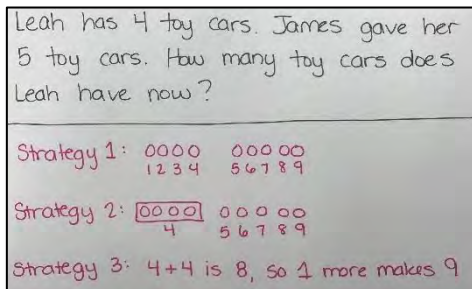 Leah has 4 toy cars. James gave her
5 toy cars. How many toy cars does
Leah have now?
Strategy 1: 0000 00000
1 2 3 4 5 6 7 8 9
Strategy 2: 0000 00000
4 5 6 7 8 9
Strategy 3: 4+4 is 8, so 1 more makes 9